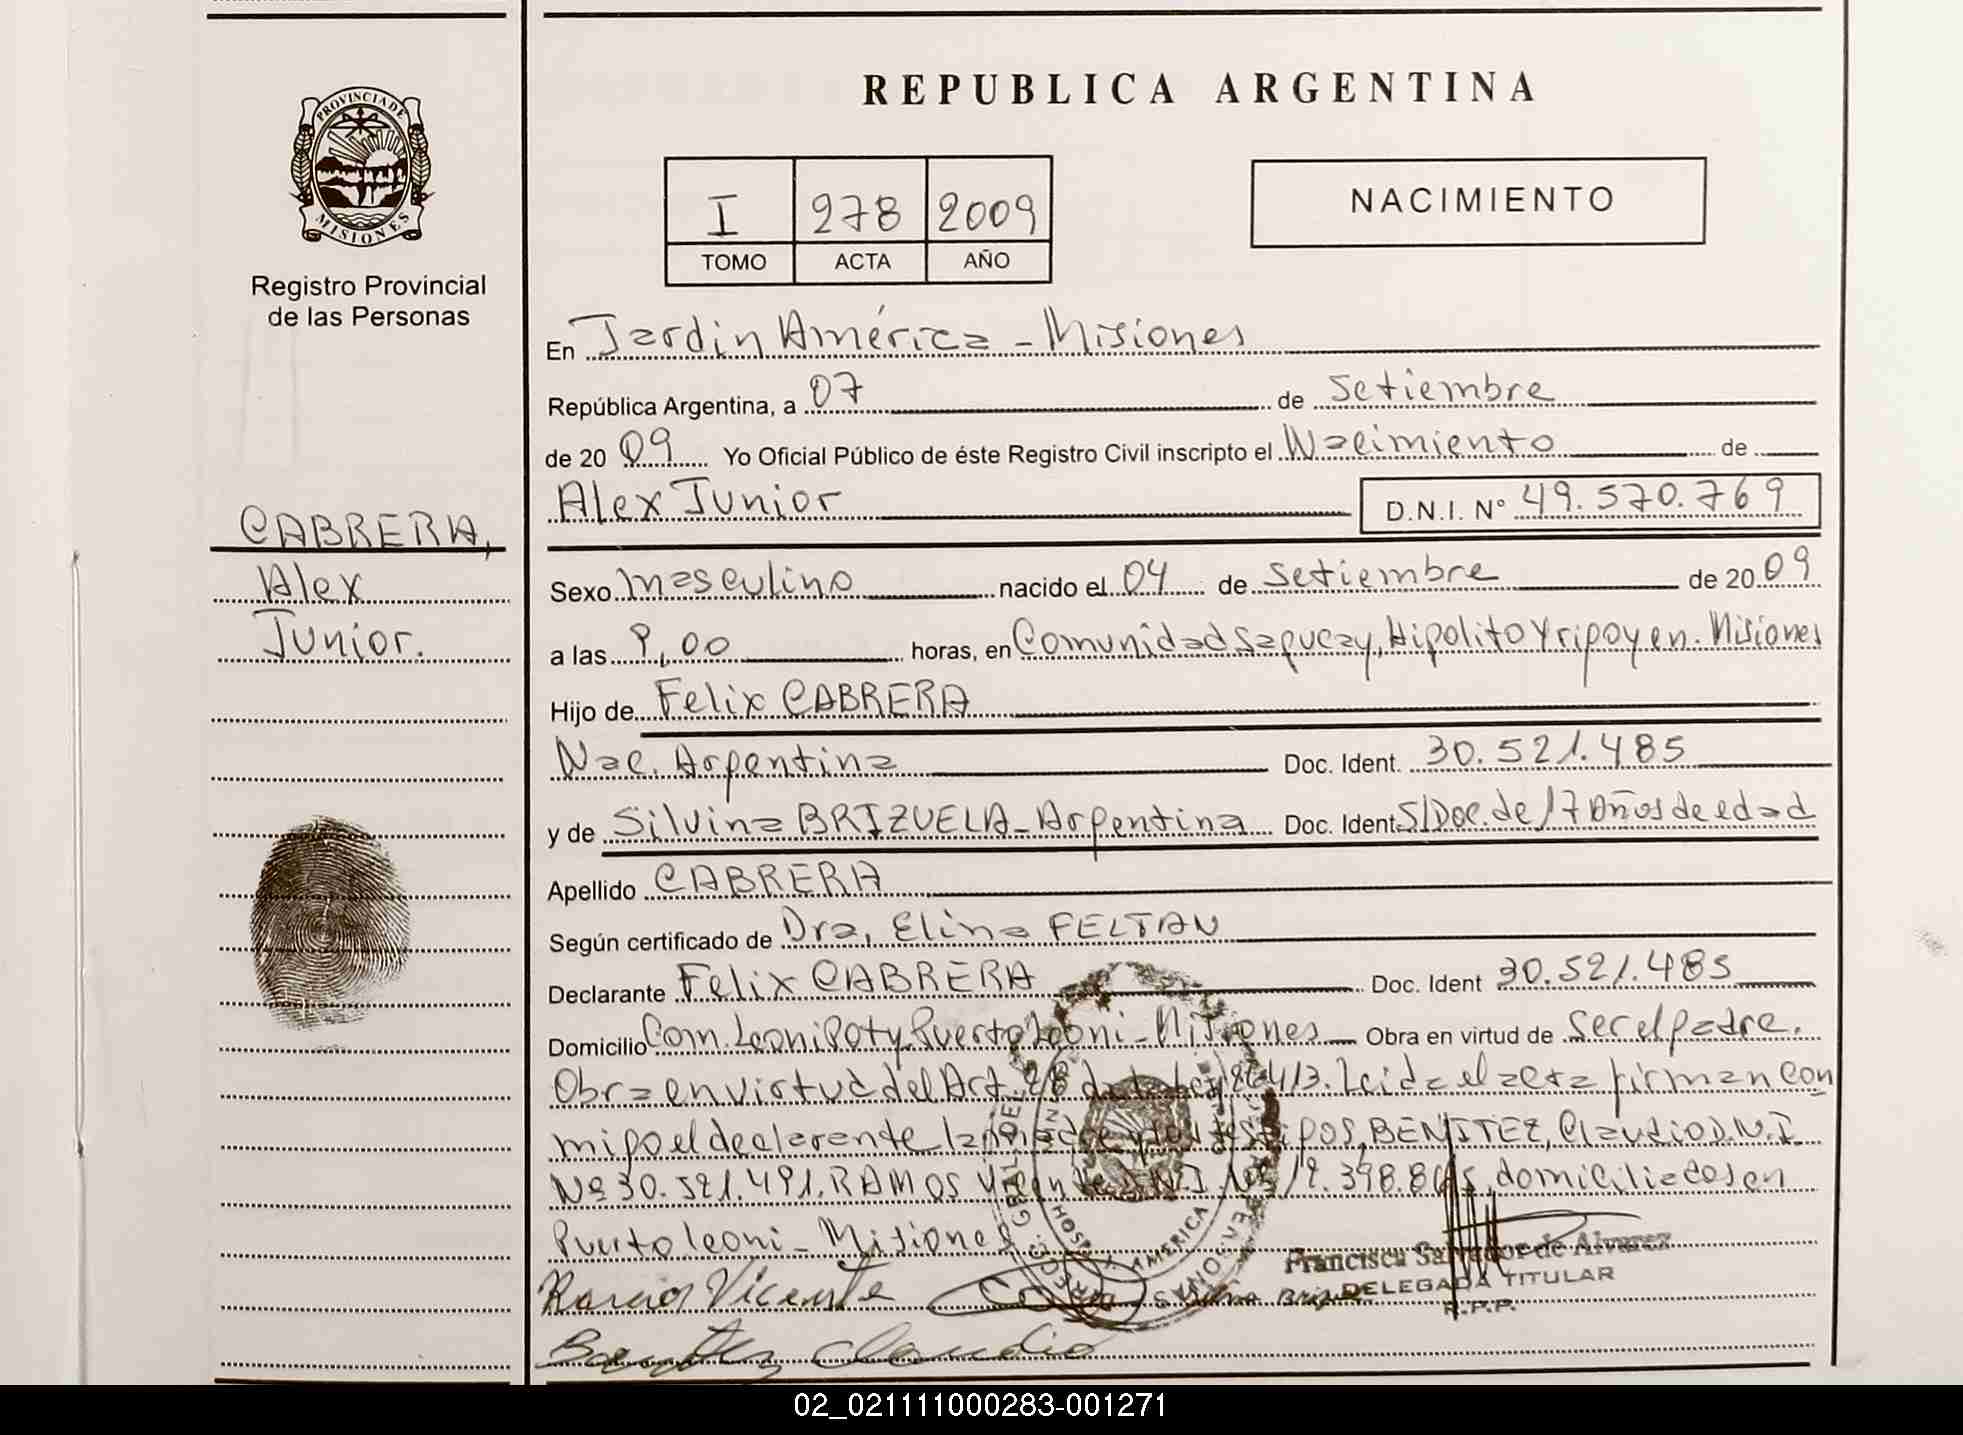 PROVINCIA DE
MISIONES
Registro Provincial
de las Personas
CABRERA,
Alex
Junior.
REPUBLICA ARGENTINA
I 278 2009
TOMO ACTA AÑO
NACIMIENTO
En Jardin América - Misiones
República Argentina, a 07 de Setiembre
de 20 09 Yo Oficial Público de éste Registro Civil inscripto el Nacimiento de
Alex Junior D.N.I. Nº 49.570.769
Sexo masculino nacido el 04 de Setiembre de 20 09
a las 9,00 horas, en Comunidad Sapucay, Hipolito Yripoyen. Misiones
Hijo de Felix CABRERA
Nac. Argentina Doc. Ident. 30.521.485
y de Silvina BRIZUELA - Argentina Doc. Ident S/Doc. de 17 Años de edad
Apellido CABRERA
Según certificado de Dra, Elina FELTAN
Declarante Felix CABRERA Doc. Ident 30.521.485
Domicilio Com. Leoni Poty Puerto Leoni - Misiones Obra en virtud de Ser el padre.
Obra en virtud del Art. 28 de la Ley Leida el acta firman con
migo el declarante la madre y los testigos, BENITEZ, Claudio D.N.I.
Nº 30.521.491. RAMOS Vicente D.N.I. domiciliados en
Puerto leoni - Misiones
Ramos Vicente Silvina Brizuela
Francisca Salvador de Alvarez
DELEGADA TITULAR
R.P.P.
Benitez Claudio
02_021111000283-001271